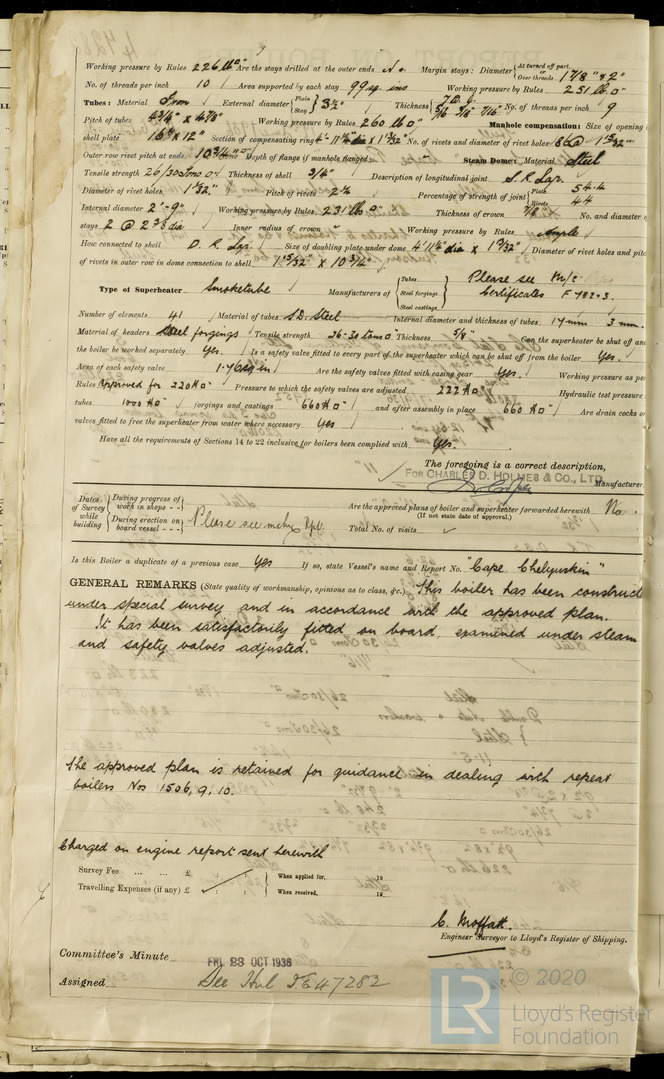 Working pressure by Rules 226 lb□" Are the stays drilled at the outer ends No. Margin stays: Diameter { At turned off part, Over threads 1 7/8" & 2"
No. of threads per inch 10 Area supported by each stay 99 sq. ins Working pressure by Rules 251 lb □"
Tubes: Material Iron External diameter { Plain Stay } 3½" Thickness { 5/16 3/8 7/16" No. of threads per inch 9
Pitch of tubes 4¾" x 4 7/8" Working pressure by Rules 260 lb □" Manhole compensation: Size of opening
shell plate 16" x 12" Section of compensating ring No. of rivets and diameter of rivet holes
Outer row rivet pitch at ends 10¾" Depth of flange if manhole flanged - Steam Dome: Material Steel
Tensile strength 26/30 tons □" Thickness of shell 3/4" Description of longitudinal joint S.R. Lap.
Diameter of rivet holes 1 1/32" Pitch of rivets 2¼ Percentage of strength of joint { Plate 54.4 Rivets 44
Internal diameter 2'-9" Working pressure by Rules 231 lb □" Thickness of crown 7/8" No. and diameter
stays 2 @ 2 3/8 dia Inner radius of crown " Working pressure by Rules Ample
How connected to shell D. R. Lap. Size of doubling plate under dome 4' 1¼" dia x 1 3/32" Diameter of rivet holes and pitc
of rivets in outer row in dome connection to shell 1 15/32" x 10¾"
Type of Superheater Smoketube Manufacturers of { Tubes Steel forgings Steel castings Please see M/c Certificates F 782.3.
Number of elements 41 Material of tubes S.D. Steel Internal diameter and thickness of tubes 17 mm 3 mm.
Material of headers Steel forgings Tensile strength 26-30 tons □" Thickness 5/8" Can the superheater be shut off and
the boiler be worked separately Yes. Is a safety valve fitted to every part of the superheater which can be shut off from the boiler Yes.
Area of each safety valve 1.76 sq in. Are the safety valves fitted with easing gear Yes. Working pressure as per
Rules Approved for 220 lb □" Pressure to which the safety valves are adjusted 222 lb □" Hydraulic test pressure
tubes 1000 lb □" forgings and castings 660 lb □" and after assembly in place 660 lb □" Are drain cocks or
valves fitted to free the superheater from water where necessary Yes
Have all the requirements of Sections 14 to 22 inclusive for boilers been complied with Yes.
The foregoing is a correct description,
FOR CHARLES D. HOLMES & CO., LTD.
Manufacturer
Dates of Survey while building { During progress of work in shops - - During erection on board vessel - - - Please see mchy Rpt.
Are the approved plans of boiler and superheater forwarded herewith No.
(If not state date of approval.)
Total No. of visits
Is this Boiler a duplicate of a previous case Yes If so, state Vessel's name and Report No. "Cape Chelyuskin"
GENERAL REMARKS (State quality of workmanship, opinions as to class, &c.) This boiler has been construct
under special survey and in accordance with the approved plan.
It has been satisfactorily fitted on board, examined under steam
and safety valves adjusted.
The approved plan is retained for guidance in dealing with repeat
boilers Nos 1506, 9, 10.
Charged on engine report sent herewith
Survey Fee ... ... £ : : When applied for, 19
Travelling Expenses (if any) £ : : When received, 19
C. Moffatt.
Engineer Surveyor to Lloyd's Register of Shipping.
Committee's Minute FRI. 23 OCT 1936
Assigned See Hul F.E. 47282
LR © 2020
Lloyd's Register
Foundation